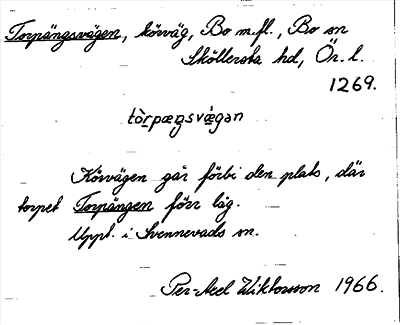 Torpängsvägen, körväg, Bo m.fl., Bo sn
Sköllersta hd, Ör. l.
1269.
tòrpæŋsvǽgən
Körvägen går förbi den plats, där
torpet Torpängen förr låg.
Uppt. i Svennevads sn.
Per-Axel Wiktorsson 1966.